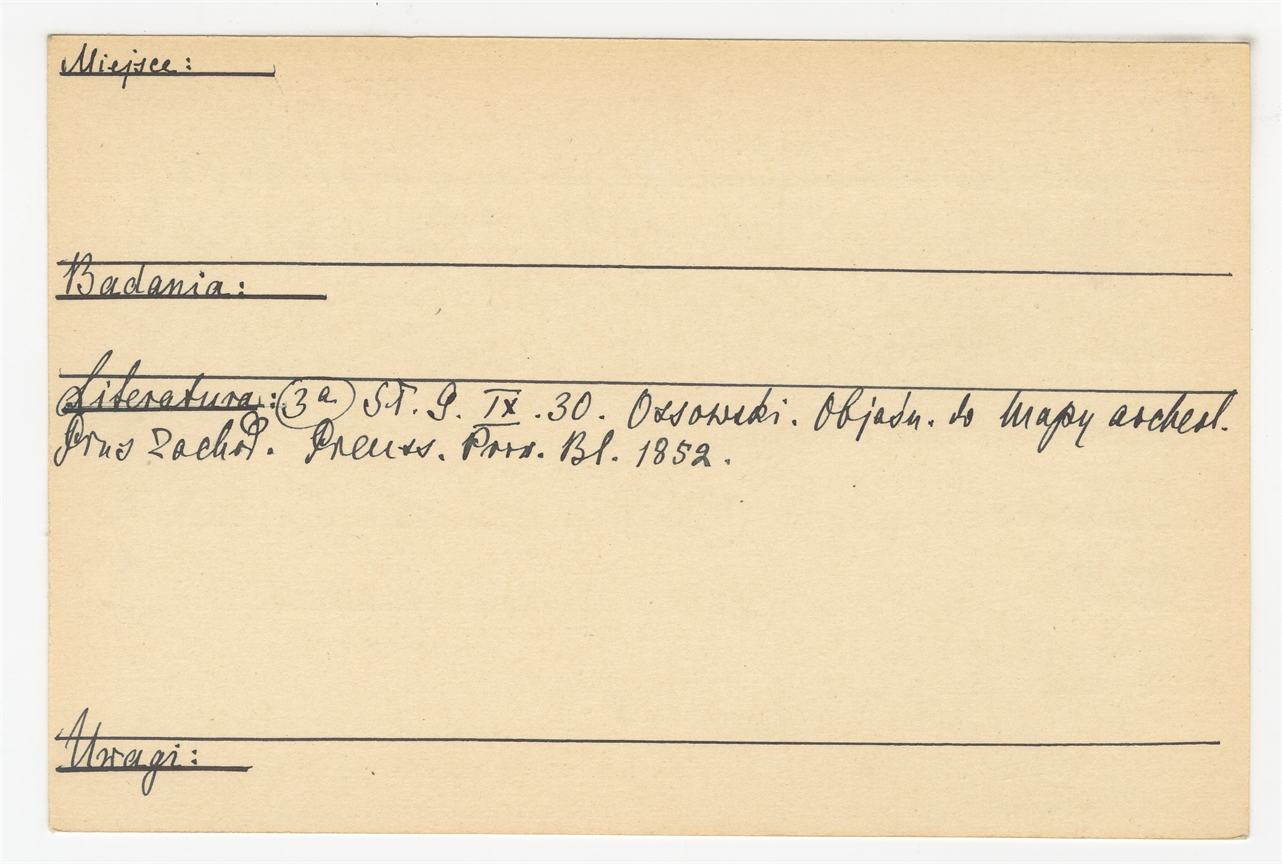 Miejsce:
Badania:
Literatura: (3a) Sł. G. IX. 30. Ossowski. Objaśn. do Mapy archeol.
Prus Zachod. Preuss. Prov. Bl. 1852.
Uwagi: